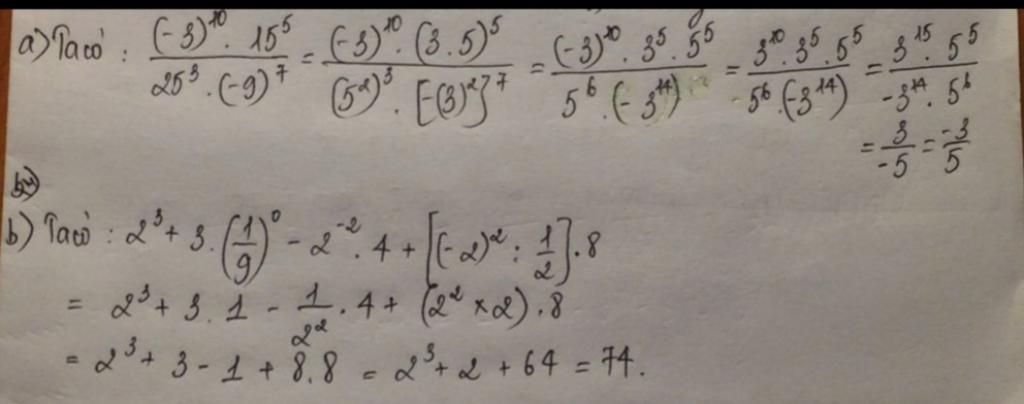 a) Ta có : \frac{(-3)^{10} \cdot 15^5}{25^3 \cdot (-9)^7} = \frac{(-3)^{10} \cdot (3 \cdot 5)^5}{(5^2)^3 \cdot [-(3)^2]^7} = \frac{(-3)^{10} \cdot 3^5 \cdot 5^5}{5^6 \cdot (-3^{14})} = \frac{3^{10} \cdot 3^5 \cdot 5^5}{5^6 \cdot (-3^{14})} = \frac{3^{15} \cdot 5^5}{-3^{14} \cdot 5^6}
= \frac{3}{-5} = \frac{-3}{5}
b) Ta có : 2^3 + 3 \cdot (\frac{1}{9})^0 - 2^{-2} \cdot 4 + [(-2)^2 : \frac{1}{2}] \cdot 8
= 2^3 + 3 \cdot 1 - \frac{1}{2^2} \cdot 4 + (2^2 × 2) \cdot 8
= 2^3 + 3 - 1 + 8.8 = 2^3 + 2 + 64 = 74.